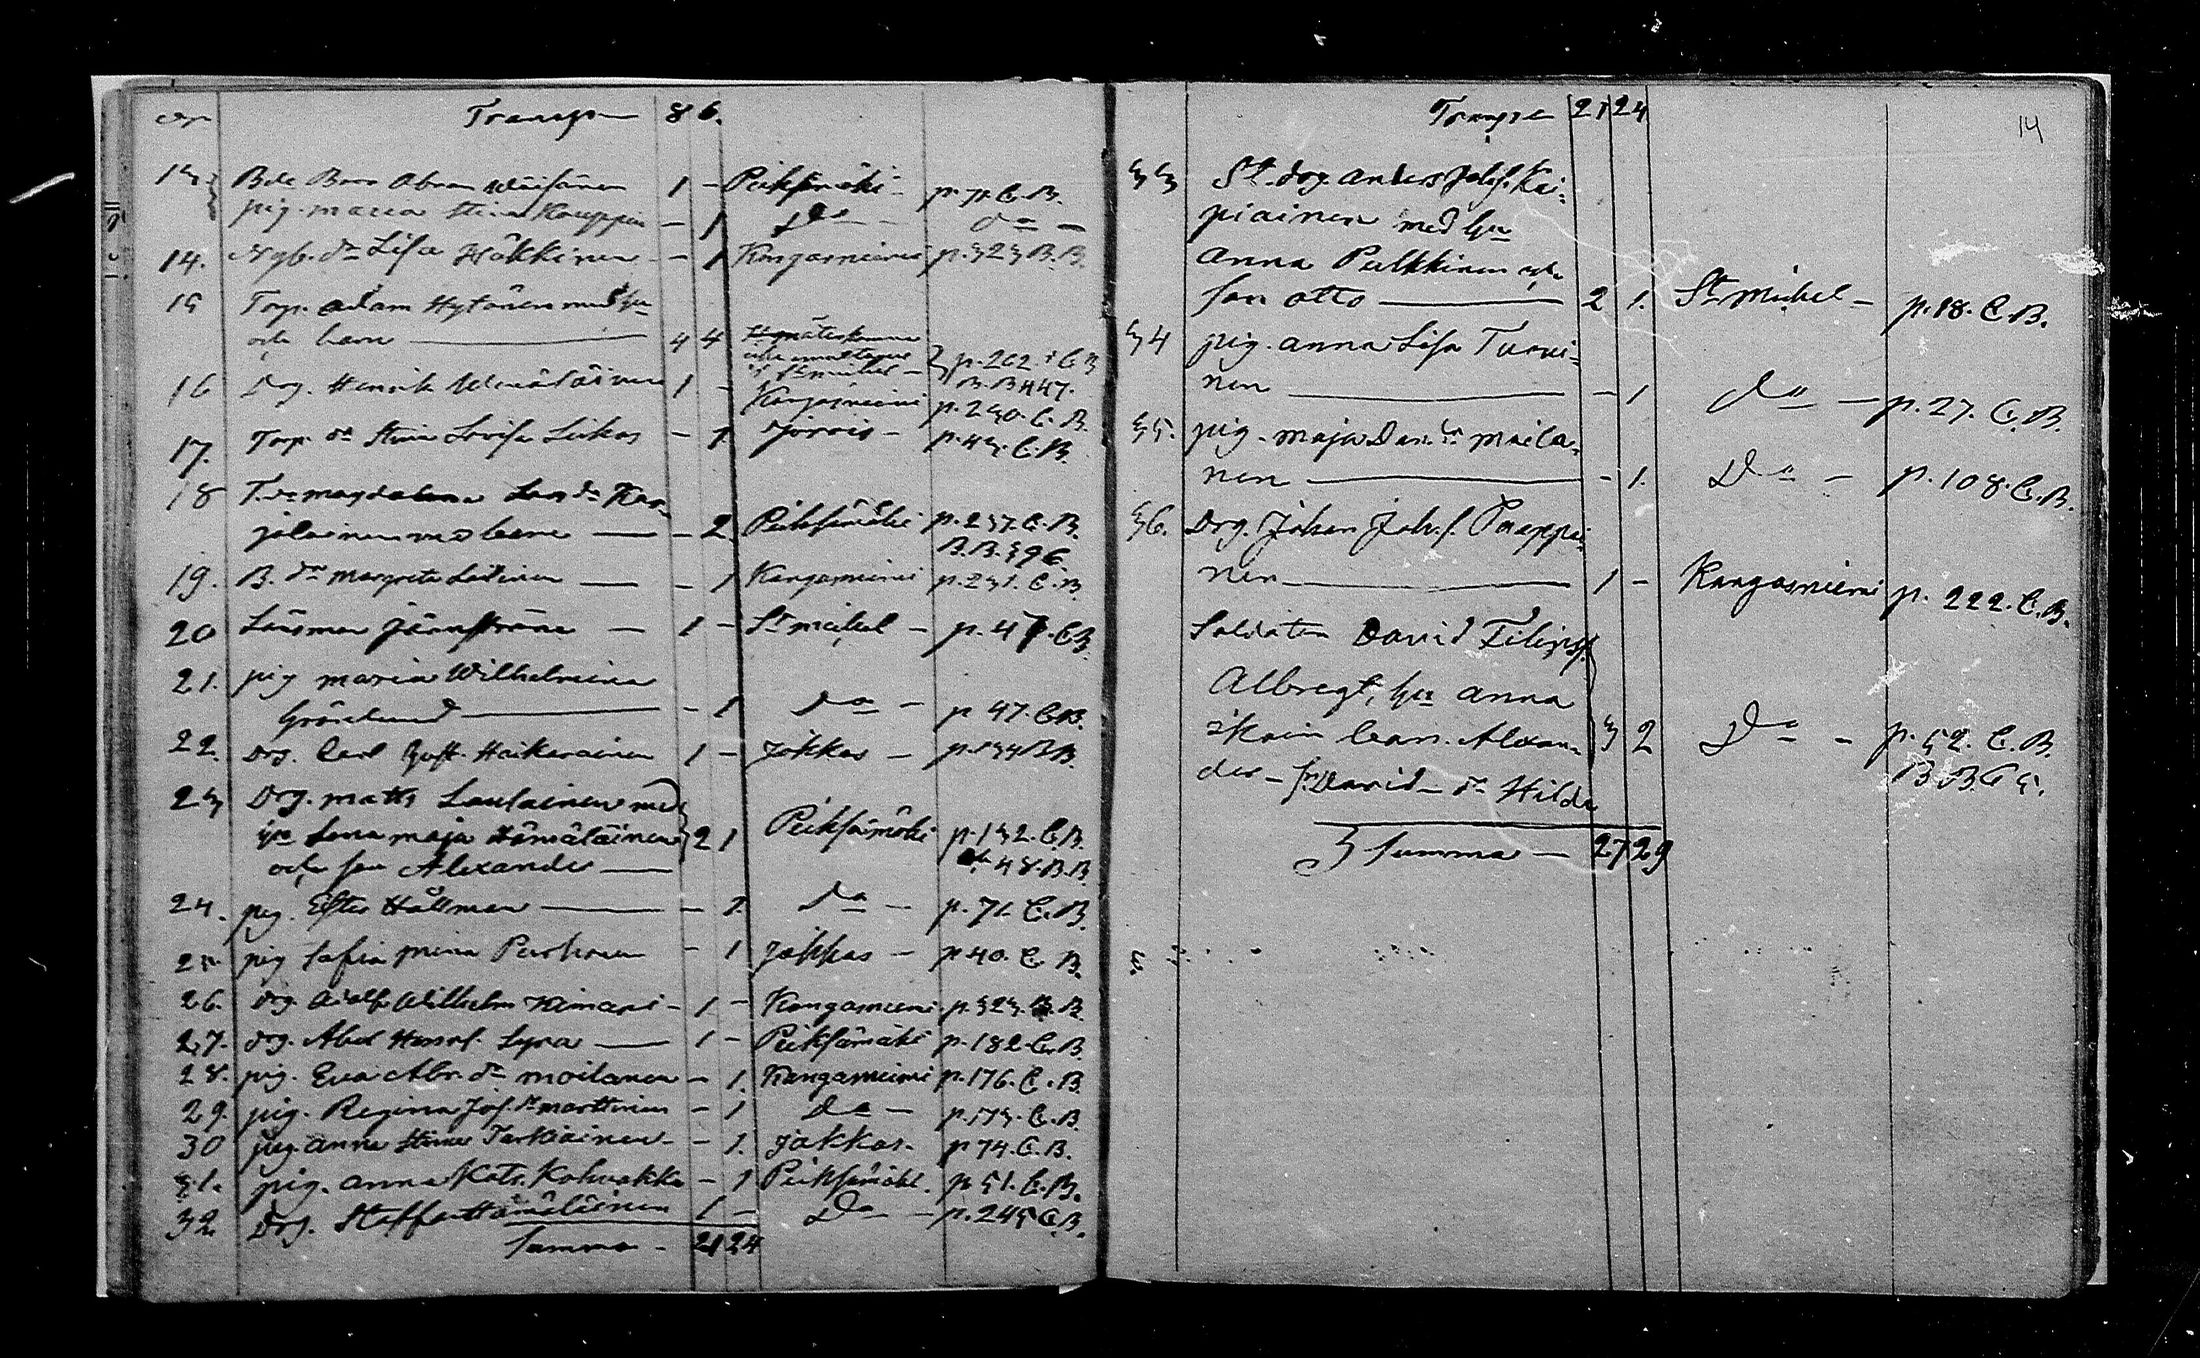 Transp 8 6.
13 Bde Bror Abram Wäisänen 1 - Pieksämäki - p. 71. C.B.
pig. Maria Stina Kauppin - 1 Do - Do -
14. Nyb. dr Lisa Häkkinen - 1 Kangasniemi p. 323 B.B.
15 Torp. Adam Hytönen med hu
och barn 4 4 St Michel - p. 262. C.B
B.B 447.
16 Drg. Henrik 1 - Kangasniemi p. 230. C.B.
17. Torp. dr Stina Lovisa Liukas - 1 Jorois - p. 43. C.B.
18 Magdalena Lars dr Kar-
jalainen med barn - 2 Pieksämäki p. 237. C.B.
B.B. 396.
19. B. dr Margreta Laitinen - 1 Kangasniemi p. 231. C.B
20 Länsman Jernström 1 - St Michel - p. 47. C.B
21. pig Maria Wilhelmina
Grönlund - 1 Do - p 47. C.B.
22. Drg. Carl Gust. Haikarainen 1 - Jokkas - p. 134 B.B.
23 Drg. Matts Laulainen med
hu Lena Maja Hämäläinen 2 1 Pieksämäki p. 132. C.B.
och son Alexander 48. B.B.
24. pig. Ester Hållman - 1. Do - p. 71 C.B
25. pig Sofia Mina Parhonen - 1 Jokkas - p. 40. C B.
26. drg. Adolf Wilhelm Kimari - 1 - Kangasniemi p. 323. B.B
27. drg. Abel Henrs. Lyra 1 - Pieksämäki p. 182. C.B.
28. pig. Eva Abr. dr Moilanen - 1. Kangasniemi p. 176. C.B
29. pig. Regina Jos. dr Marttinen - 1 Do - p. 173. C.B
30 pig. Anna Stina Tarkiainen - 1. Jokkas. p 74. C.B.
31. pig. Anna Kats. Kohvakka - 1 Pieksämäki. p. 51. C.B.
32 Drg. Staffan Hämäläinen 1 - Do - p. 245 C.B.
Summa - 21 24
14
Transp 21 24
33 St. drg. Anders Jolsf. Ka-
piainen med hu
Anna Pulkkinen och
son Otto 2 1. St Michel - p. 18. C.B.
34 pig. Anna Lisa Turui-
nen - 1 Do - p. 27. C.B.
35. pig. Maja Dan. dr Moila-
nen - 1. Do - p. 108. C.B.
36. Drg. Johan Joh. s. Paappa-
nen 1 - Kangasniemi p. 222. C.B.
Soldaten David Filips.
Albregt, hu Anna
Ikoin barn. Alexan- 3 2 Do - p. 52. C.B.
der - s. David - dr Hilda B.B. 65.
Summa - 27 29